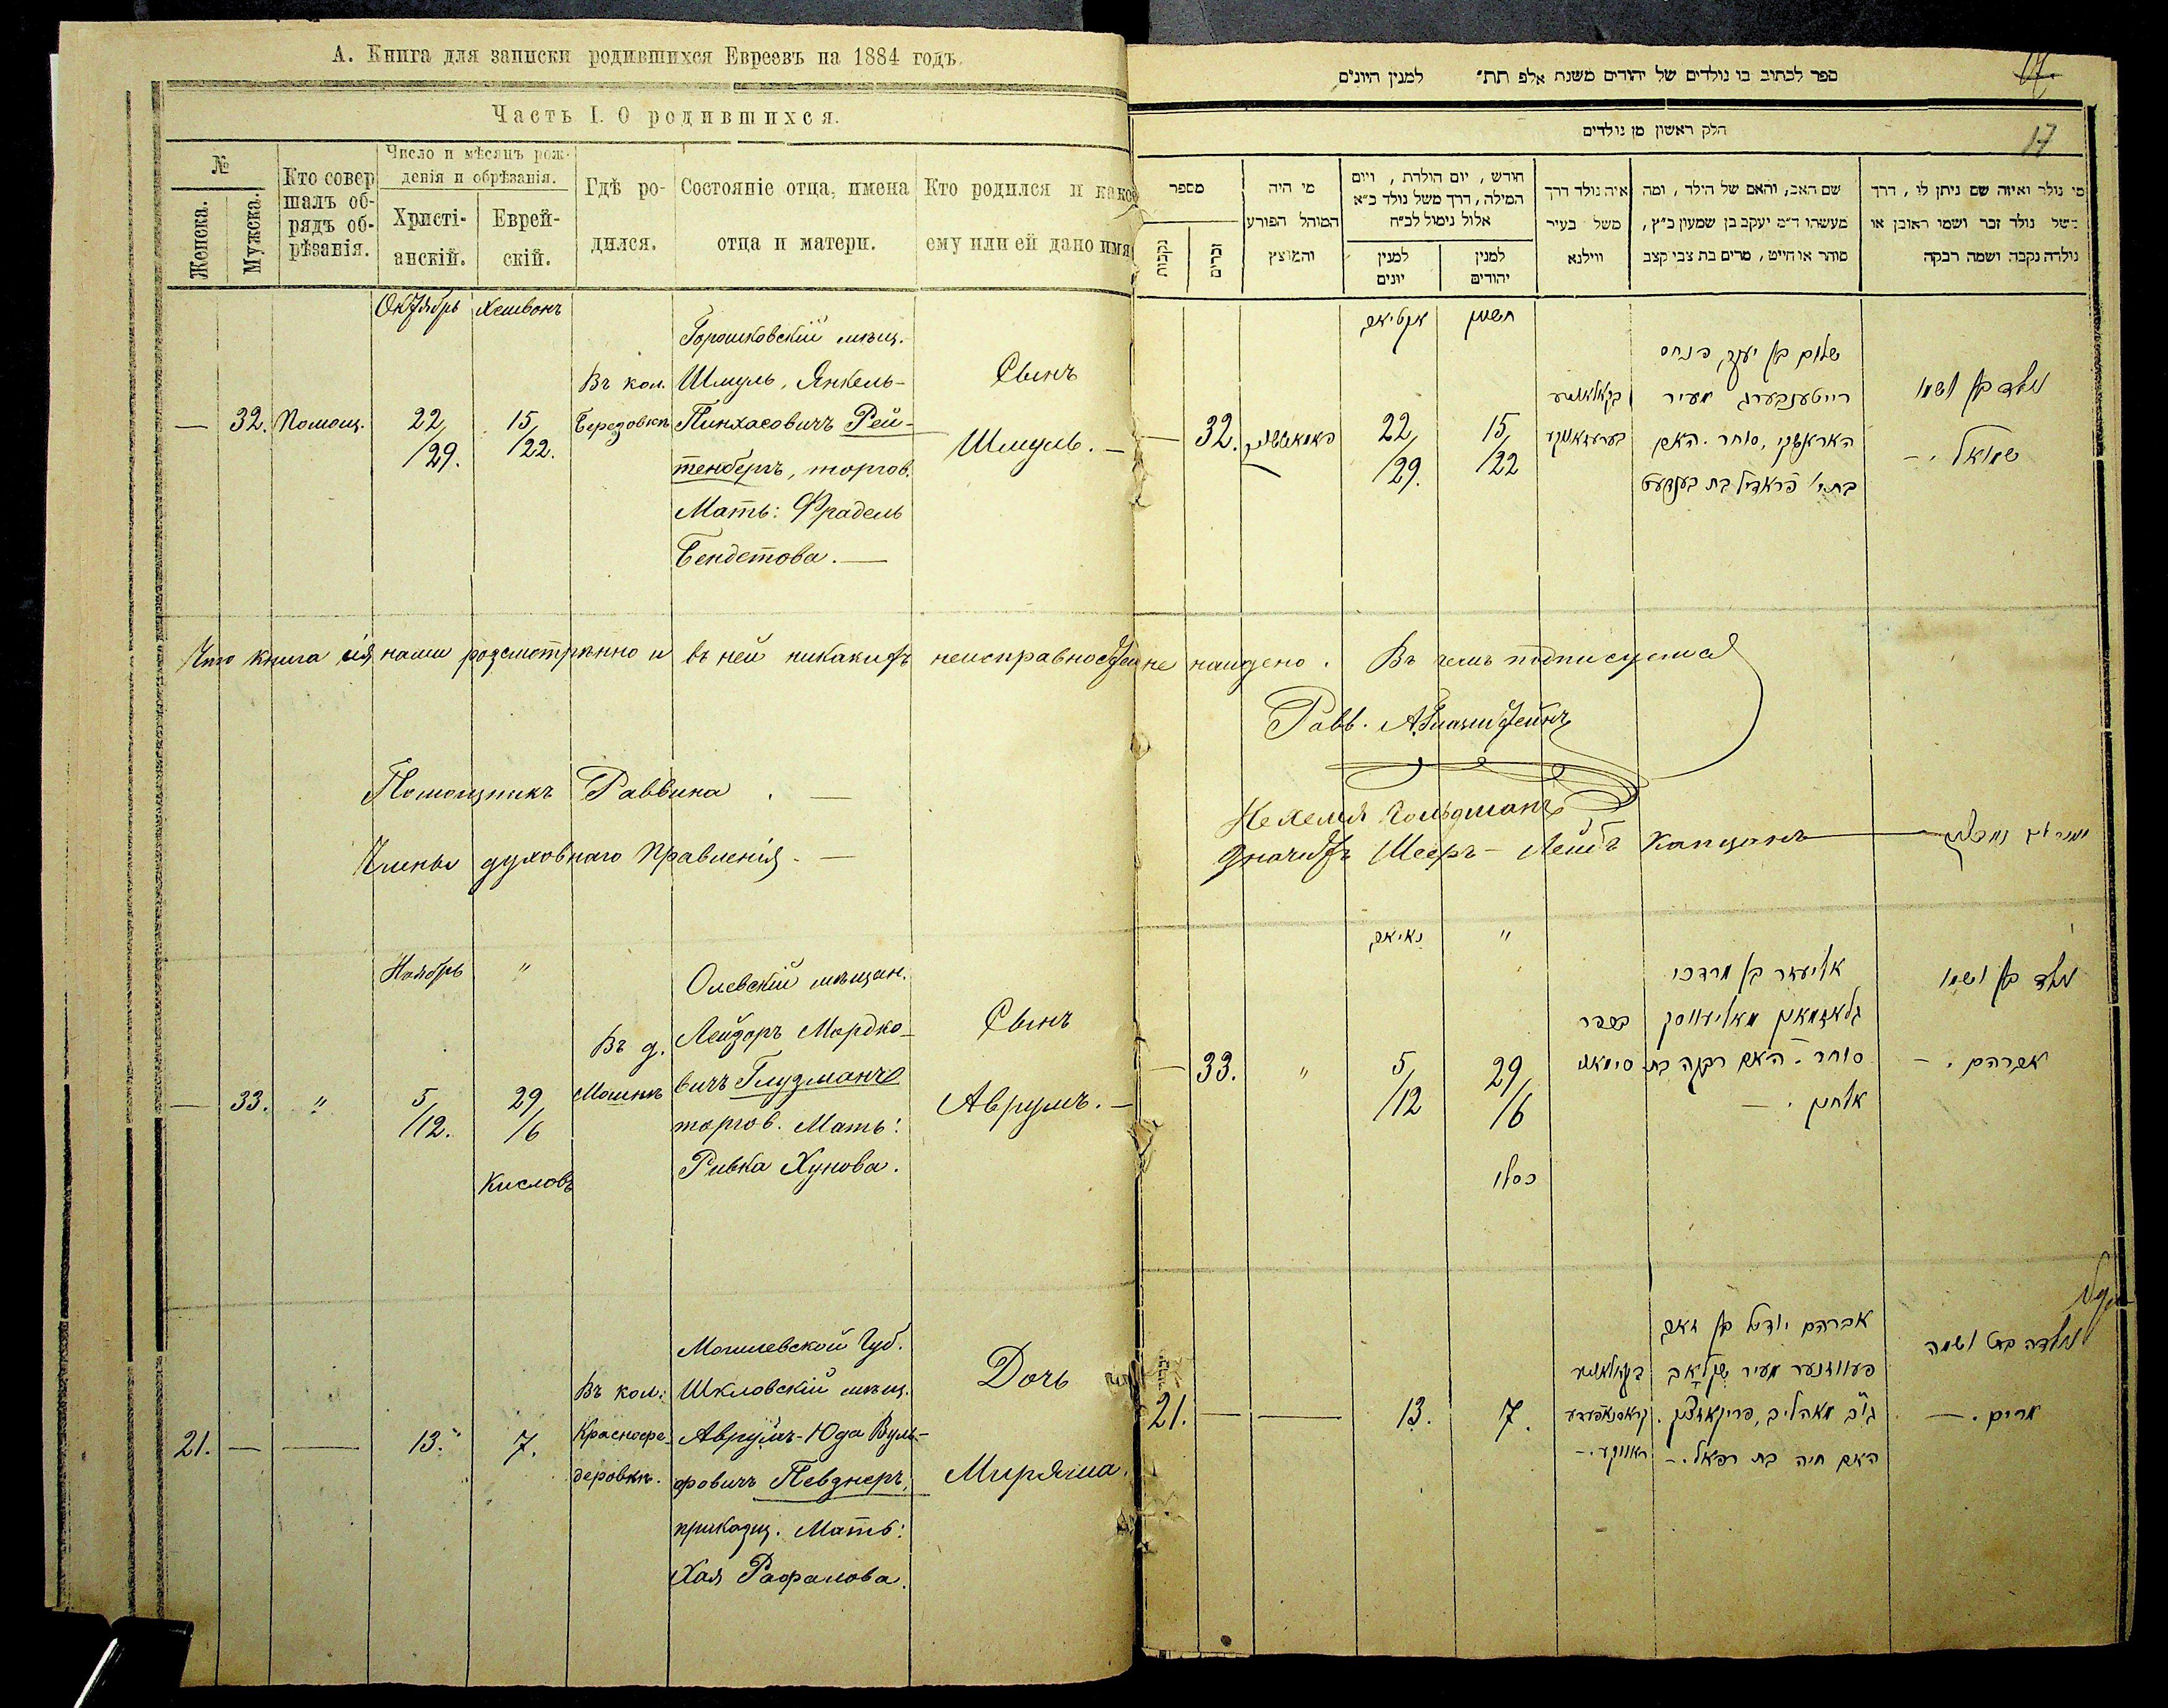 А. Книга для записки родившихся Евреевъ на 1884 годъ.
Часть I. О родившихся.
№
Женска.
Мужска.
Кто совер
шалъ об-
рядъ об-
рѣзанія.
Число и мѣсяцъ рож-
денія и обрѣзанія.
Христі-
анскій.
Еврей-
скій.
Гдѣ ро-
дился.
Состояніе отца, имена
отца и матери.
Кто родился и какое
ему или ей дано имя
Октябрь
Хешвонъ
— 32. Помощ.
22/29.
15/22.
Въ кол.
Березовкѣ
Горошковскій мѣщ.
Шмуль, Янкель-
Пинхасовичъ Рей-
тенбергъ, торгов.
Мать: Фрадель
Бендетова. —
Сынъ
Шмуль. —
Что книга сія нами розсмотрѣнно и въ ней никакихъ неисправностей не найдено. Въ чемъ подписуемся
Равв.
Помощникъ Раввина . —
Нехемія Гольдманъ
Члены духовнаго Правленія. —
Значитъ Мееръ-Лейбъ Капцанъ
Ноябрь
"
— 33. "
5/12.
29/6
Кисловъ
Въ д.
Мошнѣ
Олевскій мѣщан.
Лейзоръ Мордко-
вичъ Глузманъ
торгов. Мать:
Ривка Хунова.
Сынъ
Аврумъ. —
21. — —
13."
7.
Въ кол:
Краснофе-
деровкѣ.
Могилевской Губ.
Шкловскій мѣщ.
Аврумъ-Юда Вуль-
фовичъ Певзнеръ,
приказщ. Мать:
Хая Рафалова.
Дочь
Миряма.
ספר לכתוב בו נולדים של יהודים משנת אלפ תת״ למנין היונים
17
חלק ראשון מן נולדים
17
מספר
נקבות
זכרים
מי היה
המוהל הפורע
והמוצץ
חודש, יום הולדת, ויום
המילה, דרך משל נולד כ״א
אלול נימול לכ״ח
למנין
יונים
למנין
יהודים
איה נולד דרך
משל בעיר
ווילנא
שם האב, והאם של הילד, ומה
מעשהו ד״מ יעקב בן שמעון כ״ץ,
סוחר או חייט, מרים בת צבי קצב
מי נולד ואיזה שם ניתן לו, דרך
משל נולד זכר ושמו ראובן או
נולדה נקבה ושמה רבקה
חשון
— 32.
22/29.
15/22
רייטענבערג מעיר
סוחר. האם
נולד בן ושמו
שמואל. —
"
— 33. "
5/12
29/6
כסלו
אליעזר בן מרדכי
גלאזמאן מאליעווסק
סוחר. האם רבקה בת
אלחנן. —
נולד בן ושמו
אברהם. —
21. — —
13.
7.
אברהם יודל בן זאב
פעווזנער מעיר שקלאב
האם חיה בת רפאל. —
נולדה בת ושמה
מרים. —